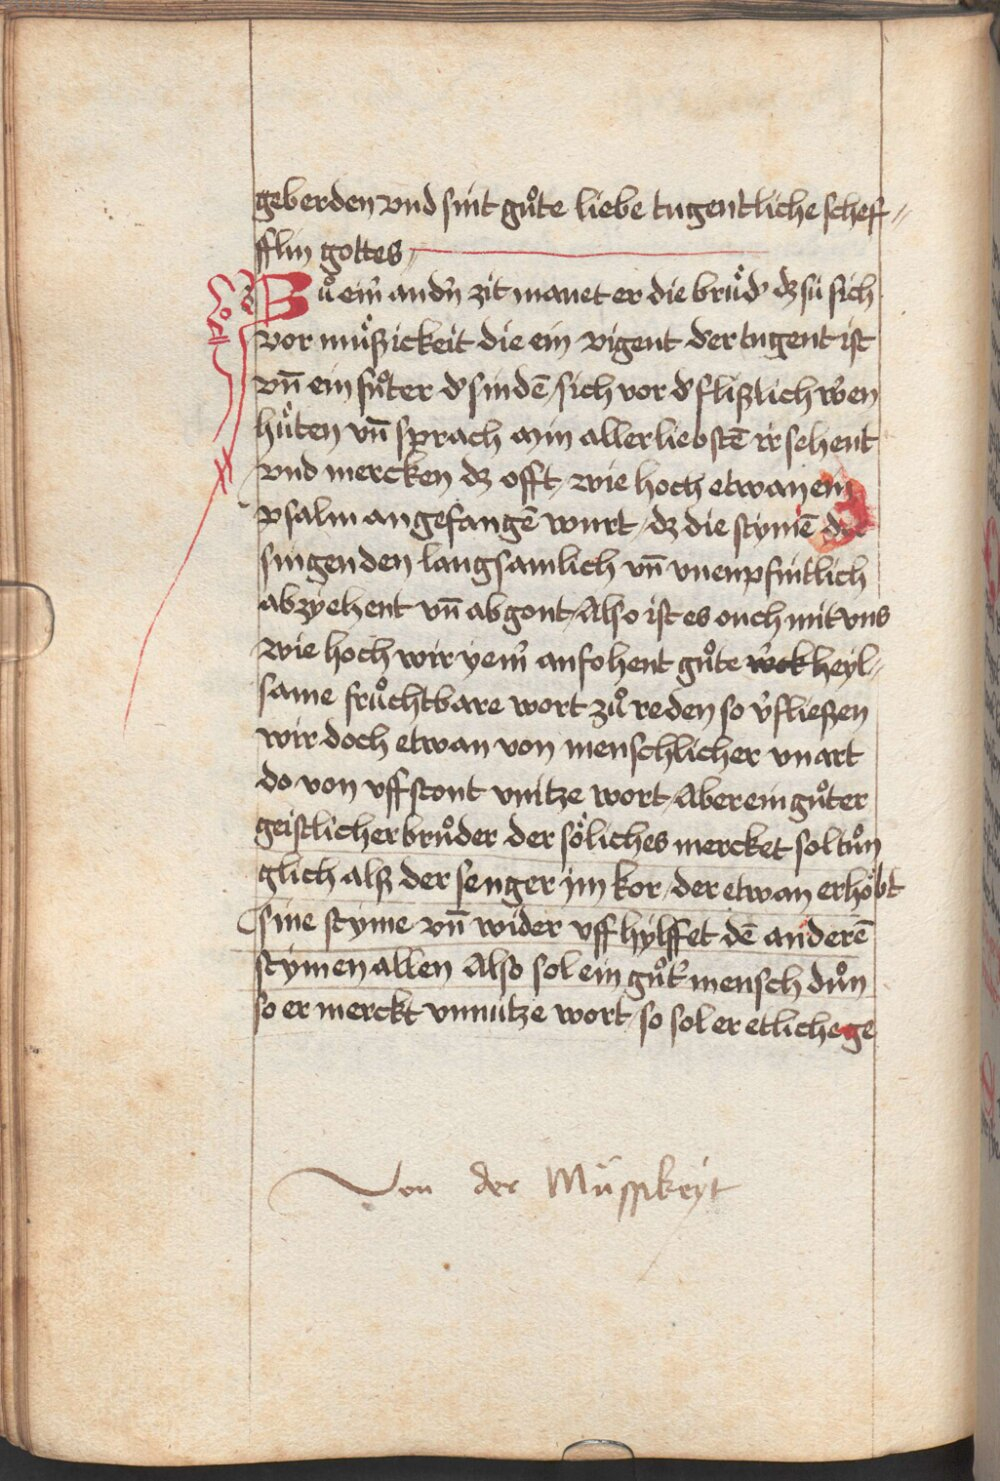 geberden vnd sint gůte liebe tugentliche schef⸗
fflin gottes
Zů eim̄ andn̄ zit manet er die brůd' dz sü sich
vor můßickeit die ein vigent der tugent ist
vn̄ ein fůter d' sindē / sich vor d' flißlich w'en
hůten vn̄ sprach min allerliebstē ir sehent
vnd mercken dz offt / wie hoch etwan ein
psalm angefangē wurt / dz die stymē der
singenden langsamlich vn̄ vnenpfintlich
abzyehent vn̄ abgont / Also ist es ouch mit vns
wie hoch wir yem̄ anfohent gůte heyl⸗
same frůchtbare wort zů reden so v'fließen
wir doch etwan von menschlicher vnart
do von vffstont vnitze wort / Aber ein gůter
geistlicher brůder der söliches mercket sol tůn
glich alß der senger jm kor / der etwan erhöbt
sine styme vn̄ wider vff hylffet dē anderē
stymen allen Also sol ein gůt' mensch důn
so er merckt vnnutze wort / so sol er etliche ge
Von der Müssikeyt